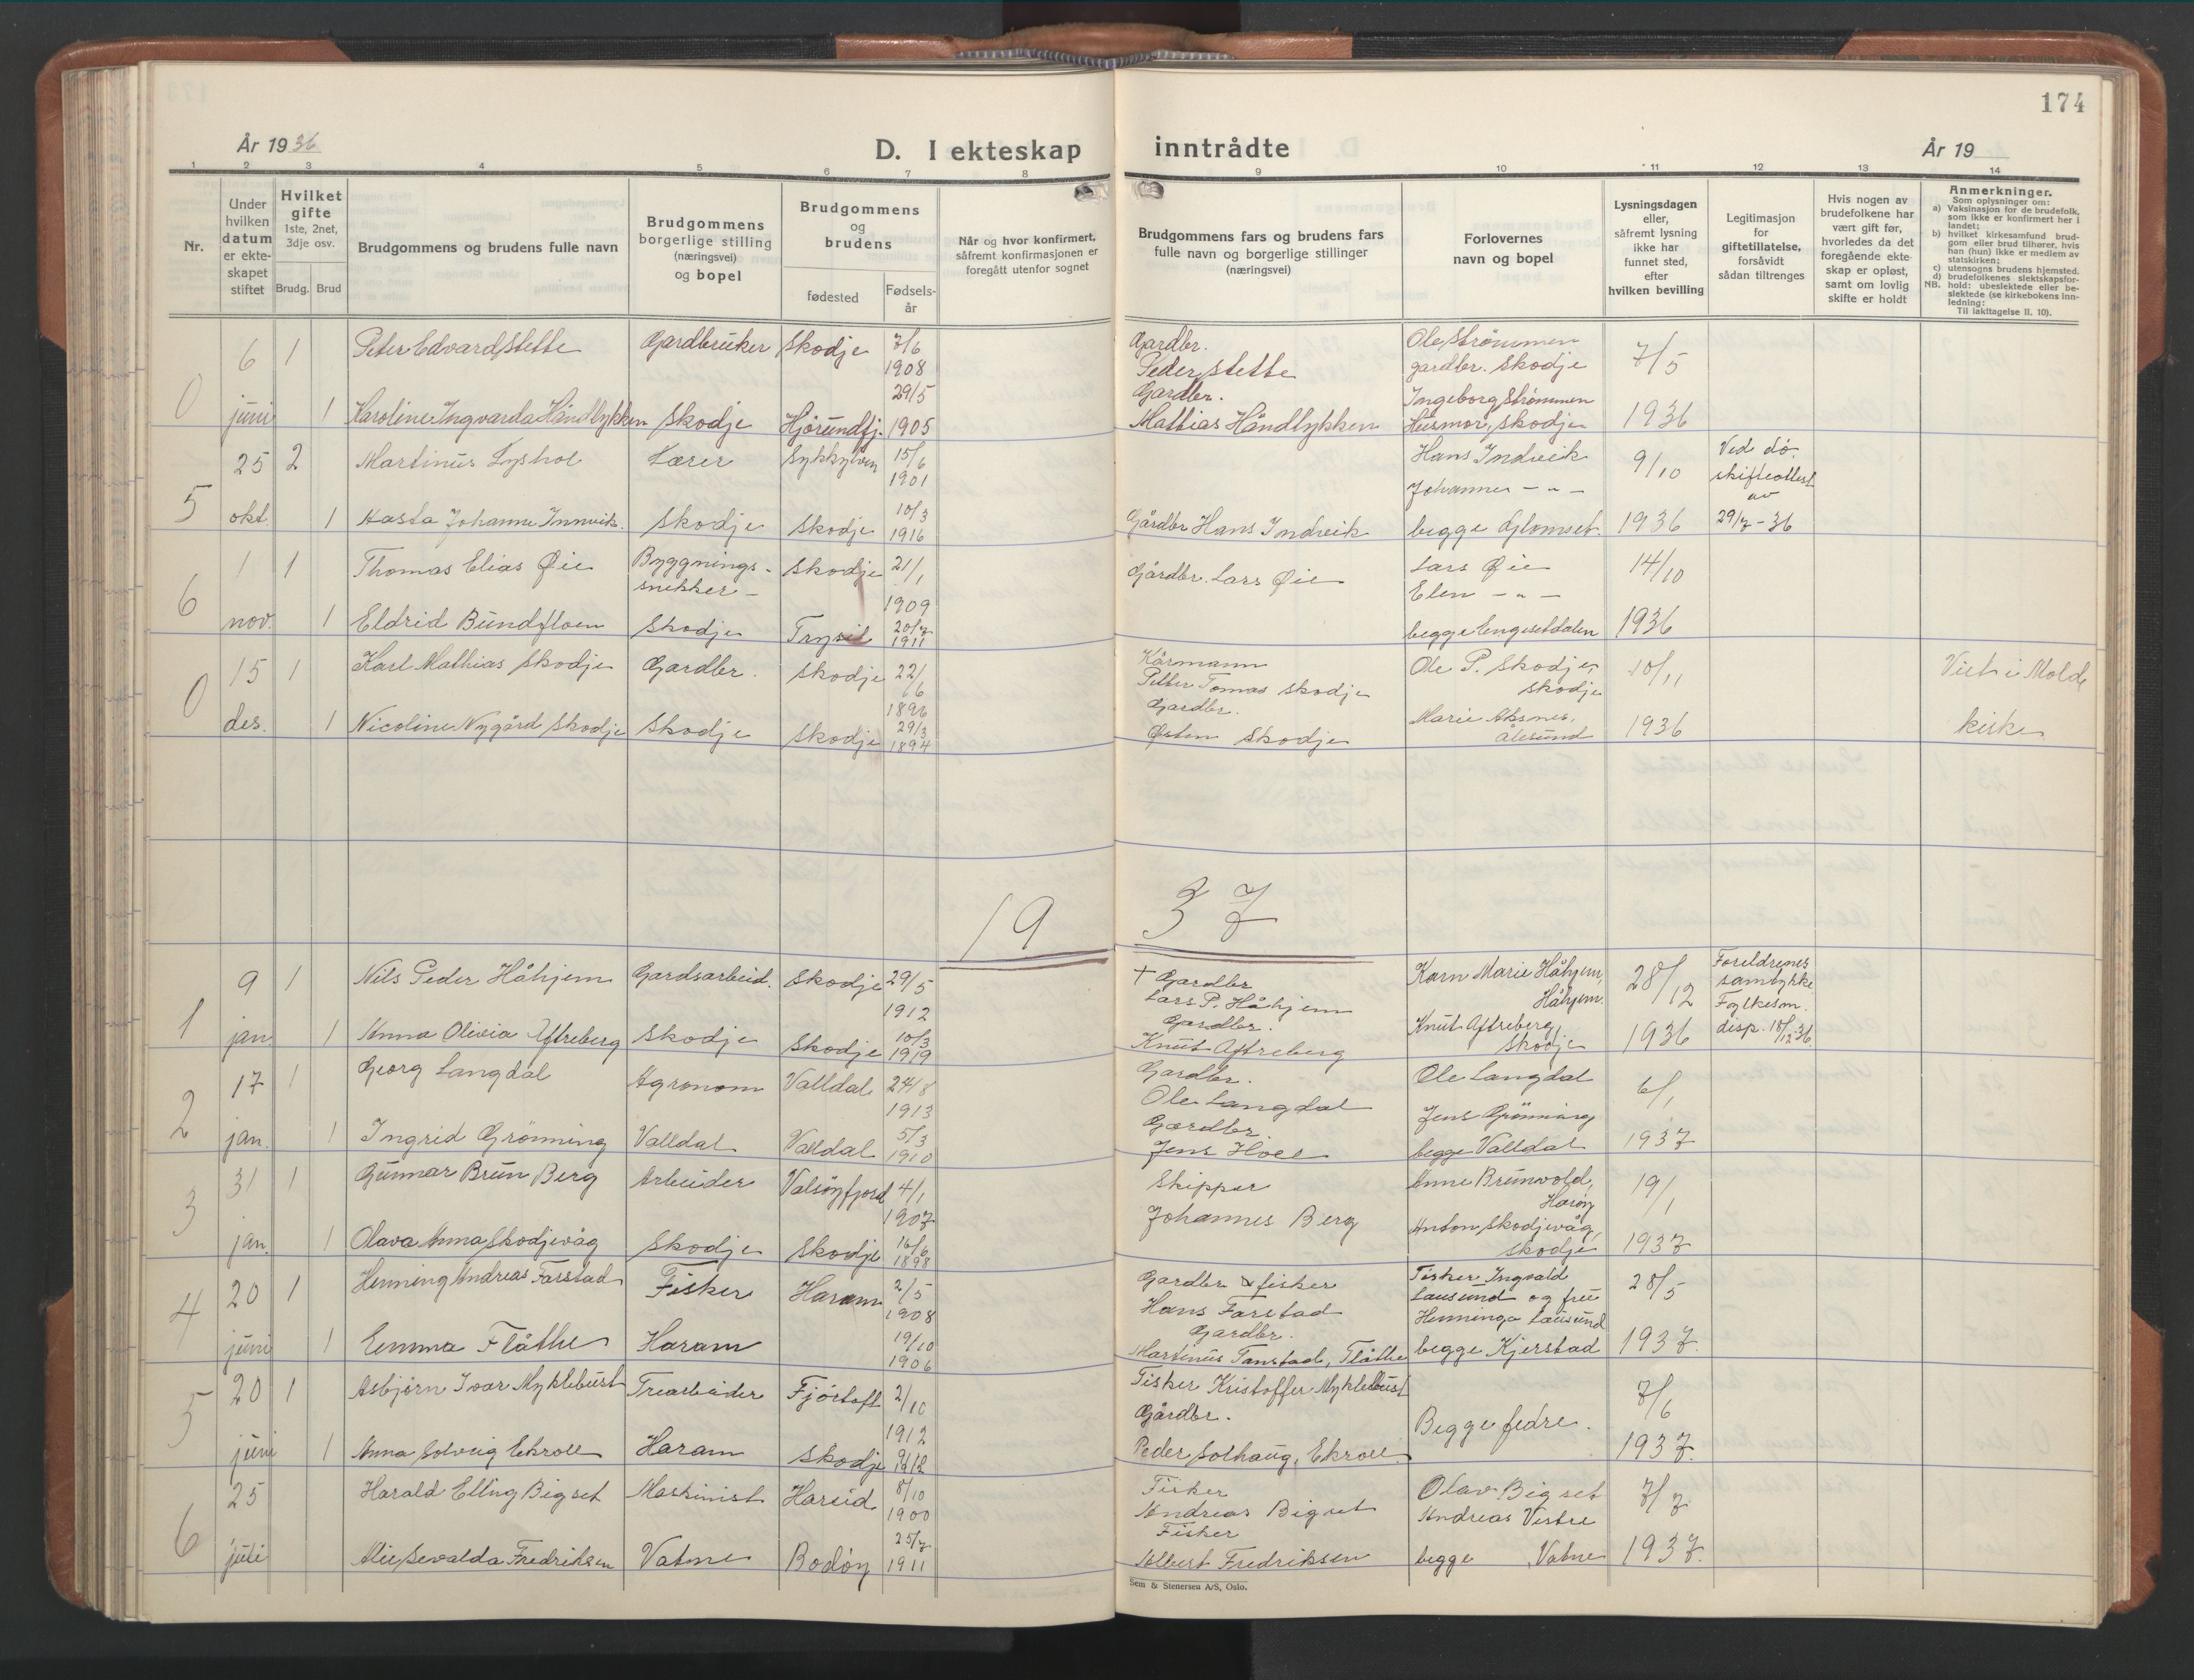 174
År 1936
D. I ekteskap
inntrådte
År 19
1 2 3 4 5 6 7 8 9 10 11 12 13 14
Nr.
Under hvilken datum er ekteskapet stiftet
Hvilket gifte 1ste, 2net, 3dje osv.
Brudg. Brud
Brudgommens og brudens fulle navn
Brudgommens borgerlige stilling (næringsvei) og bopel
Brudgommens og brudens
fødested
Fødselsår
Når og hvor konfirmert, såfremt konfirmasjonen er foregått utenfor sognet
Brudgommens fars og brudens fars fulle navn og borgerlige stillinger (næringsvei)
Forlovernes navn og bopel
Lysningsdagen eller, såfremt lysning ikke har funnet sted, efter hvilken bevilling
Legitimasjon for giftetillatelse, forsåvidt sådan tiltrenges
Hvis nogen av brudefolkene har vært gift før, hvorledes da det foregående ekteskap er opløst, samt om lovlig skifte er holdt
Anmerkninger.
Som oplysninger om:
a) Vaksinasjon for de brudefolk, som ikke er konfirmert her i landet;
b) hvilket kirkesamfund brudgom eller brud tilhører, hvis han (hun) ikke er medlem av statskirken;
c) utensogns brudens hjemsted.
d) brudefolkenes slektskapsforhold: ubeslektede eller beslektede (se kirkebokens innledning:
NB.
Til iakttagelse II. 10).
6 1 Peter Edvard Stette Gardbruker Skodje 7/6 1908 Gardbr. Peder Stette Ole Strømmen gardbr. Skodje 7/5
0 juni 1 Karoline Ingvarda Håndlykken Skodje Hjörundfj. 29/5 1905 Gardbr. Mattias Håndlykken Ingeborg Strømmen Husmor, Skodje 1936
25 2 Martinus Lyshol Lærer Sykkylven 15/6 1901 Hans Indreik 9/10 Ved dö. skifteattest av
5 okt. 1 Aasta Johanne Innvik. Skodje Skodje 10/3 1916 Gårdbr Hans Indreik Johanne - " - begge Glomset. 1936 29/7-36
1 1 Thomas Elias Øie Byggnings-snekker - Skodje 21/1 1909 Gårdbr. Lars Øie Lars Øie 14/10
6 nov. 1 Eldrid Bundfloen Skodje Trysil 20/7 1911 Elen - " - begge Engesetdalen 1936
15 1 Karl Mathias Skodje Gardbr. Skodje 22/6 1896 Kårmann Petter Tomas Skodje Ole P. Skodje, Skodje 10/11 Viet i Molde
0 des. 1 Nicoline Nygård Skodje Skodje Skodje 29/3 1894 Gardbr. Østen Skodje Marie Aksnes, Ålesund 1936 kirke
19 37
9 1 Nils Peder Håhjem Gardsarbeid. Skodje 29/5 1912 + Gardbr Lars P. Håhjem Karn Marie Håhjem, Håhjem. 28/12 Foreldrenes samtykke
1 jan. 1 Anna Olivia Aftreberg Skodje Skodje 10/3 1919 Gardbr. Knut Aftreberg Knut Aftreberg, Skodje 1936 Fylkesm. disp. 18/12 36.
17 1 Georg Langdal Agronom Valldal 24/8 1913 Gardbr. Ole Langdal Ole Langdal 6/1
2 jan. 1 Ingrid Grönning Valldal Valldal 5/3 1910 Gardbr Jens Hoel Jens Grönning begge Valldal 1937
31 1 Gunnar Brun Berg Arbeider Valsöyfjord 4/1 1907 Skipper Johannes Berg Anne Brunvold, Haröy 19/1
3 jan. 1 Olava Anna Skodjevåg Skodje Skodje 16/6 1898 Anton Skodjevåg, Skodje 1937
20 1 Henning Andreas Farstad Fisker Haram 2/5 1908 Gardbr & fisker Hans Farstad Fisker Ingvald Lausund og frue 28/5
4 juni 1 Emma Flåthe Haram 19/10 1906 Gardbr. Martinus Tanstad, Flåthe Henninga Lausund begge Kjerstad 1937.
20 1 Asbjørn Ivar Myklebust Trearbeider Fjörtoft 2/10 1912 Fisker Kristoffer Myklebust 7/6
5 juni 1 Anna Solveig Ekroll Haram Skodje Gårdbr. Peder Solhaug, Ekroll. Begge fedre. 1937.
25 Harald Elling Bigset Maskinist Hareid 8/10 1900 Fisker Andreas Bigset Olav Bigset 7/7
6 juli Alie Sevalda Fredriksen Vatne Bodöy 25/7 1911 Fisker Albert Fredriksen Andreas Vestre begge Vatne 1937.
Sem & Stenersen A/S, Oslo.